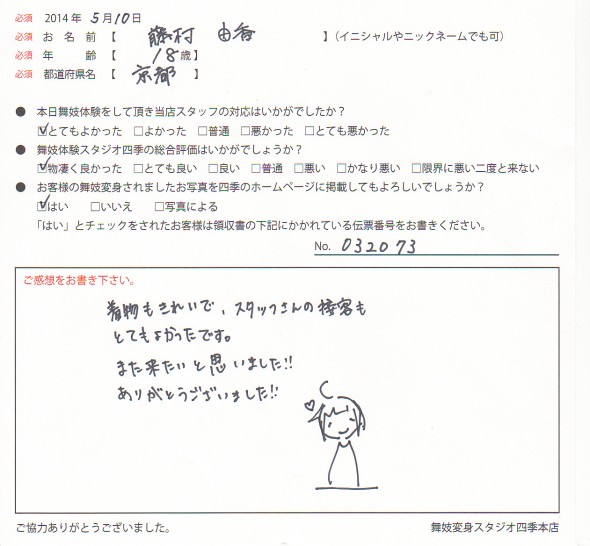 必須 2014 年 5月10日
必須 お 名 前 【 藤村 由香 】(イニシャルやニックネームでも可)
必須 年 齢 【 18歳】
必須 都道府県名 【 京都 】
● 本日舞妓体験をして頂き当店スタッフの対応はいかがでしたか？
☑とてもよかった □よかった □普通 □悪かった □とても悪かった
● 舞妓体験スタジオ四季の総合評価はいかがでしょうか？
☑物凄く良かった □とても良い □良い □普通 □悪い □かなり悪い □限界に悪い二度と来ない
● お客様の舞妓変身されましたお写真を四季のホームページに掲載してもよろしいでしょうか？
☑はい □いいえ □写真による
「はい」とチェックをされたお客様は領収書の下記にかかれている伝票番号をお書きください。
No. 032073
ご感想をお書き下さい。
着物もきれいで、スタッフさんの接客も
とてもよかったです。
また来たいと思いました!!
ありがとうございました!!
ご協力ありがとうございました。 舞妓変身スタジオ四季本店